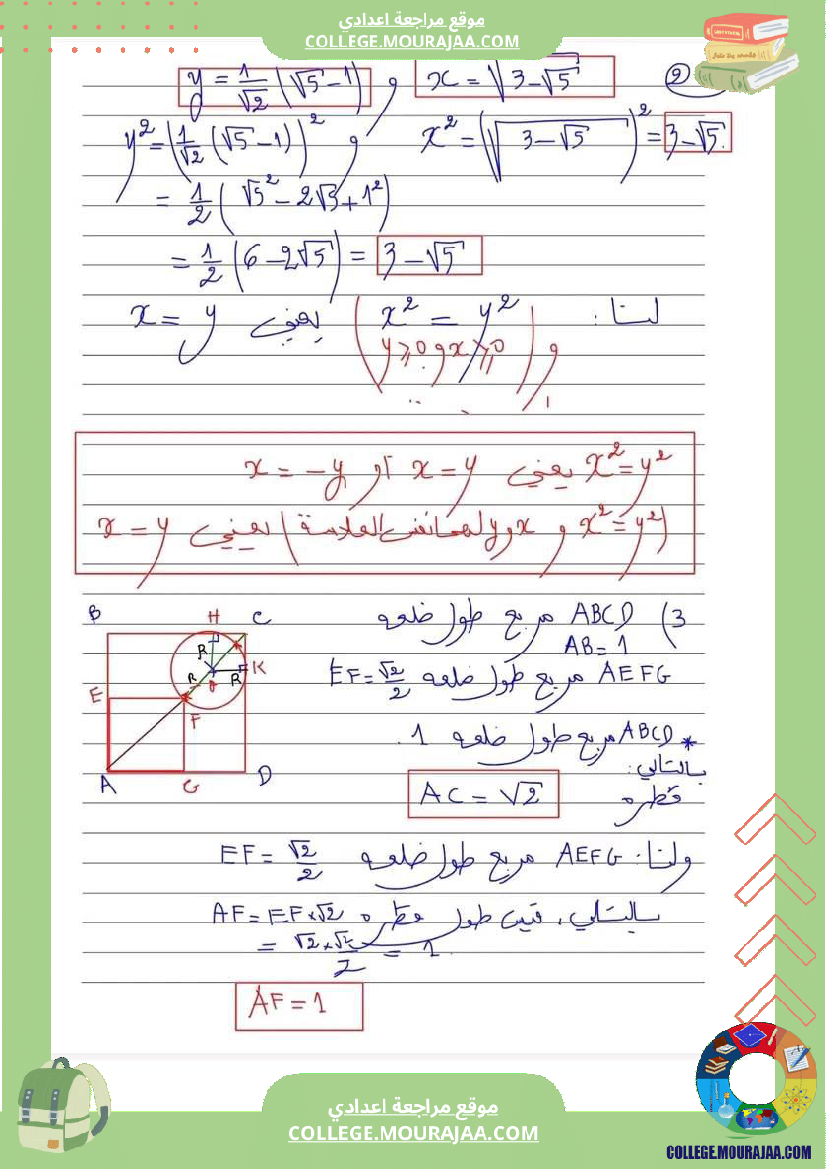 موقع مراجعة اعدادي
COLLEGE.MOURAJAA.COM
2) x = √(3-√5) و y = 1/√2 (√5-1)
x² = (√(3-√5))² = 3-√5. و y² = (1/√2 (√5-1))²
= 1/2 (√5² - 2√5 + 1²)
= 1/2 (6-2√5) = 3-√5
لنا: (x² = y² يعني x = y
و x ⩾ 0 و y ⩾ 0)
x² = y² يعني x = y أو x = -y
(x² = y² و x و y لهما نفس العلامة) يعني x = y
3) ABCD مربع طول ضلعه
AB = 1
AEFG مربع طول ضلعه EF = √2/2
* ABCD مربع طول ضلعه 1.
بالتالي:
قطره AC = √2
B H C
R
K
R R
E O
F
A G D
ولنا: AEFG مربع طول ضلعه EF = √2/2
بالتالي، قيس طول قطره AF = EF × √2
= √2 × √2 / 2 = 1
AF = 1
موقع مراجعة اعدادي
COLLEGE.MOURAJAA.COM
COLLEGE.MOURAJAA.COM